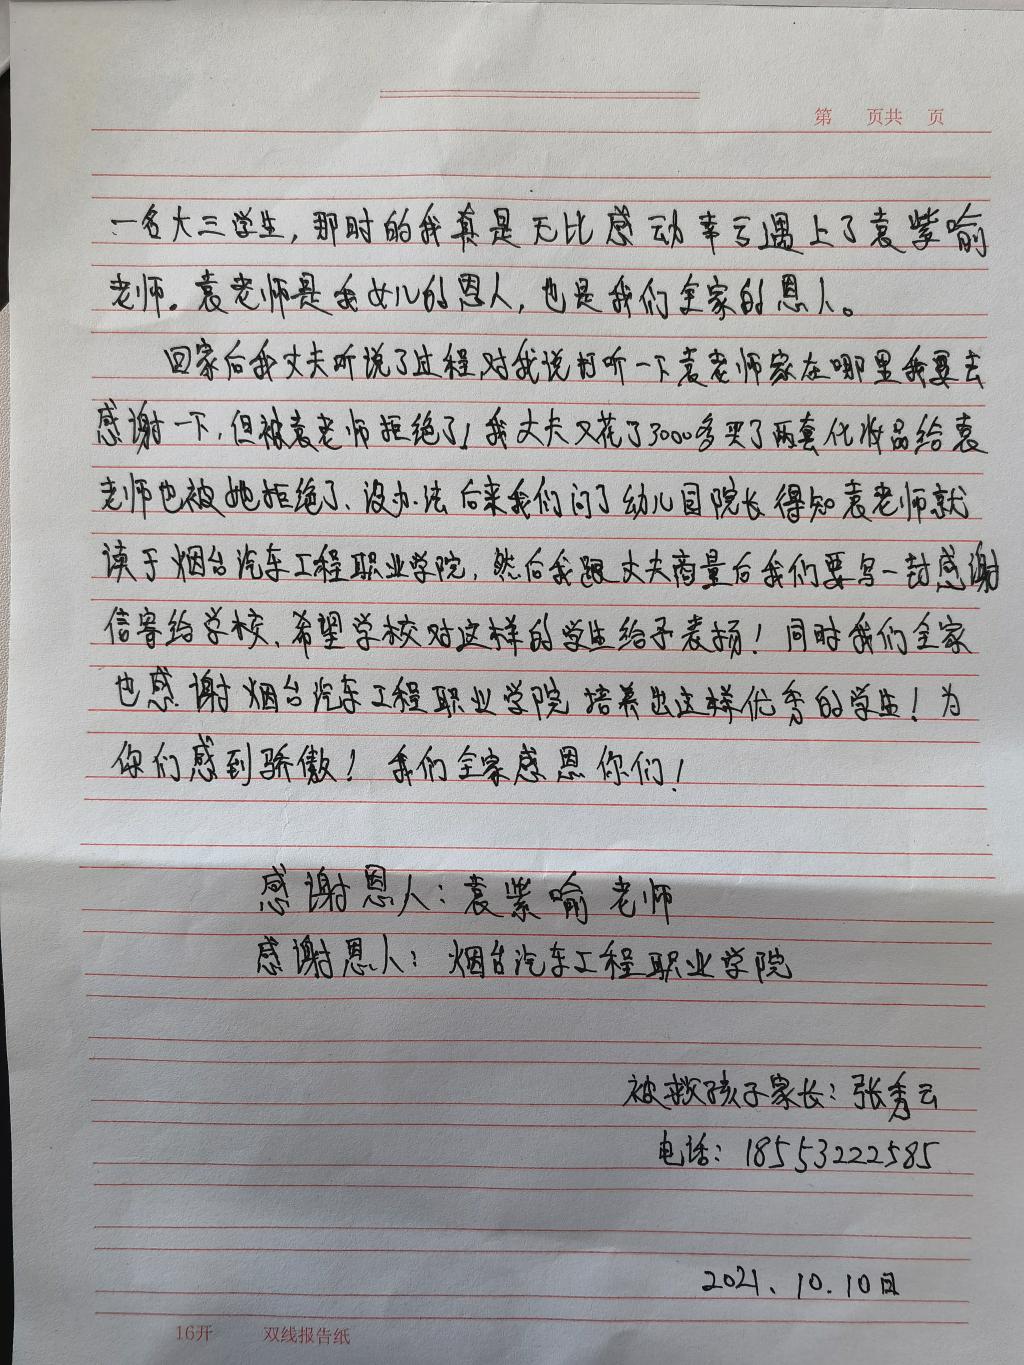 第 页共 页
一名大三学生，那时的我真是无比感动幸亏遇上了袁紫喻
老师。袁老师是我女儿的恩人，也是我们全家的恩人。
回家后我丈夫听说了过程,对我说打听一下袁老师家在哪里我要去
感谢一下，但被袁老师拒绝了！我丈夫又花了3000多买了两套化妆品给袁
老师也被她拒绝了、没办法后来我们问了幼儿园院长得知袁老师就
读于烟台汽车工程职业学院，然后我跟丈夫商量后我们要写一封感谢
信寄给学校、希望学校对这样的学生给予表扬！同时我们全家
也感谢烟台汽车工程职业学院培养出这样优秀的学生！为
你们感到骄傲！我们全家感恩你们！
感谢恩人：袁紫喻老师
感谢恩人：烟台汽车工程职业学院
被救孩子家长：张秀云
电话：18553222585
2021、10.10日
16开 双线报告纸